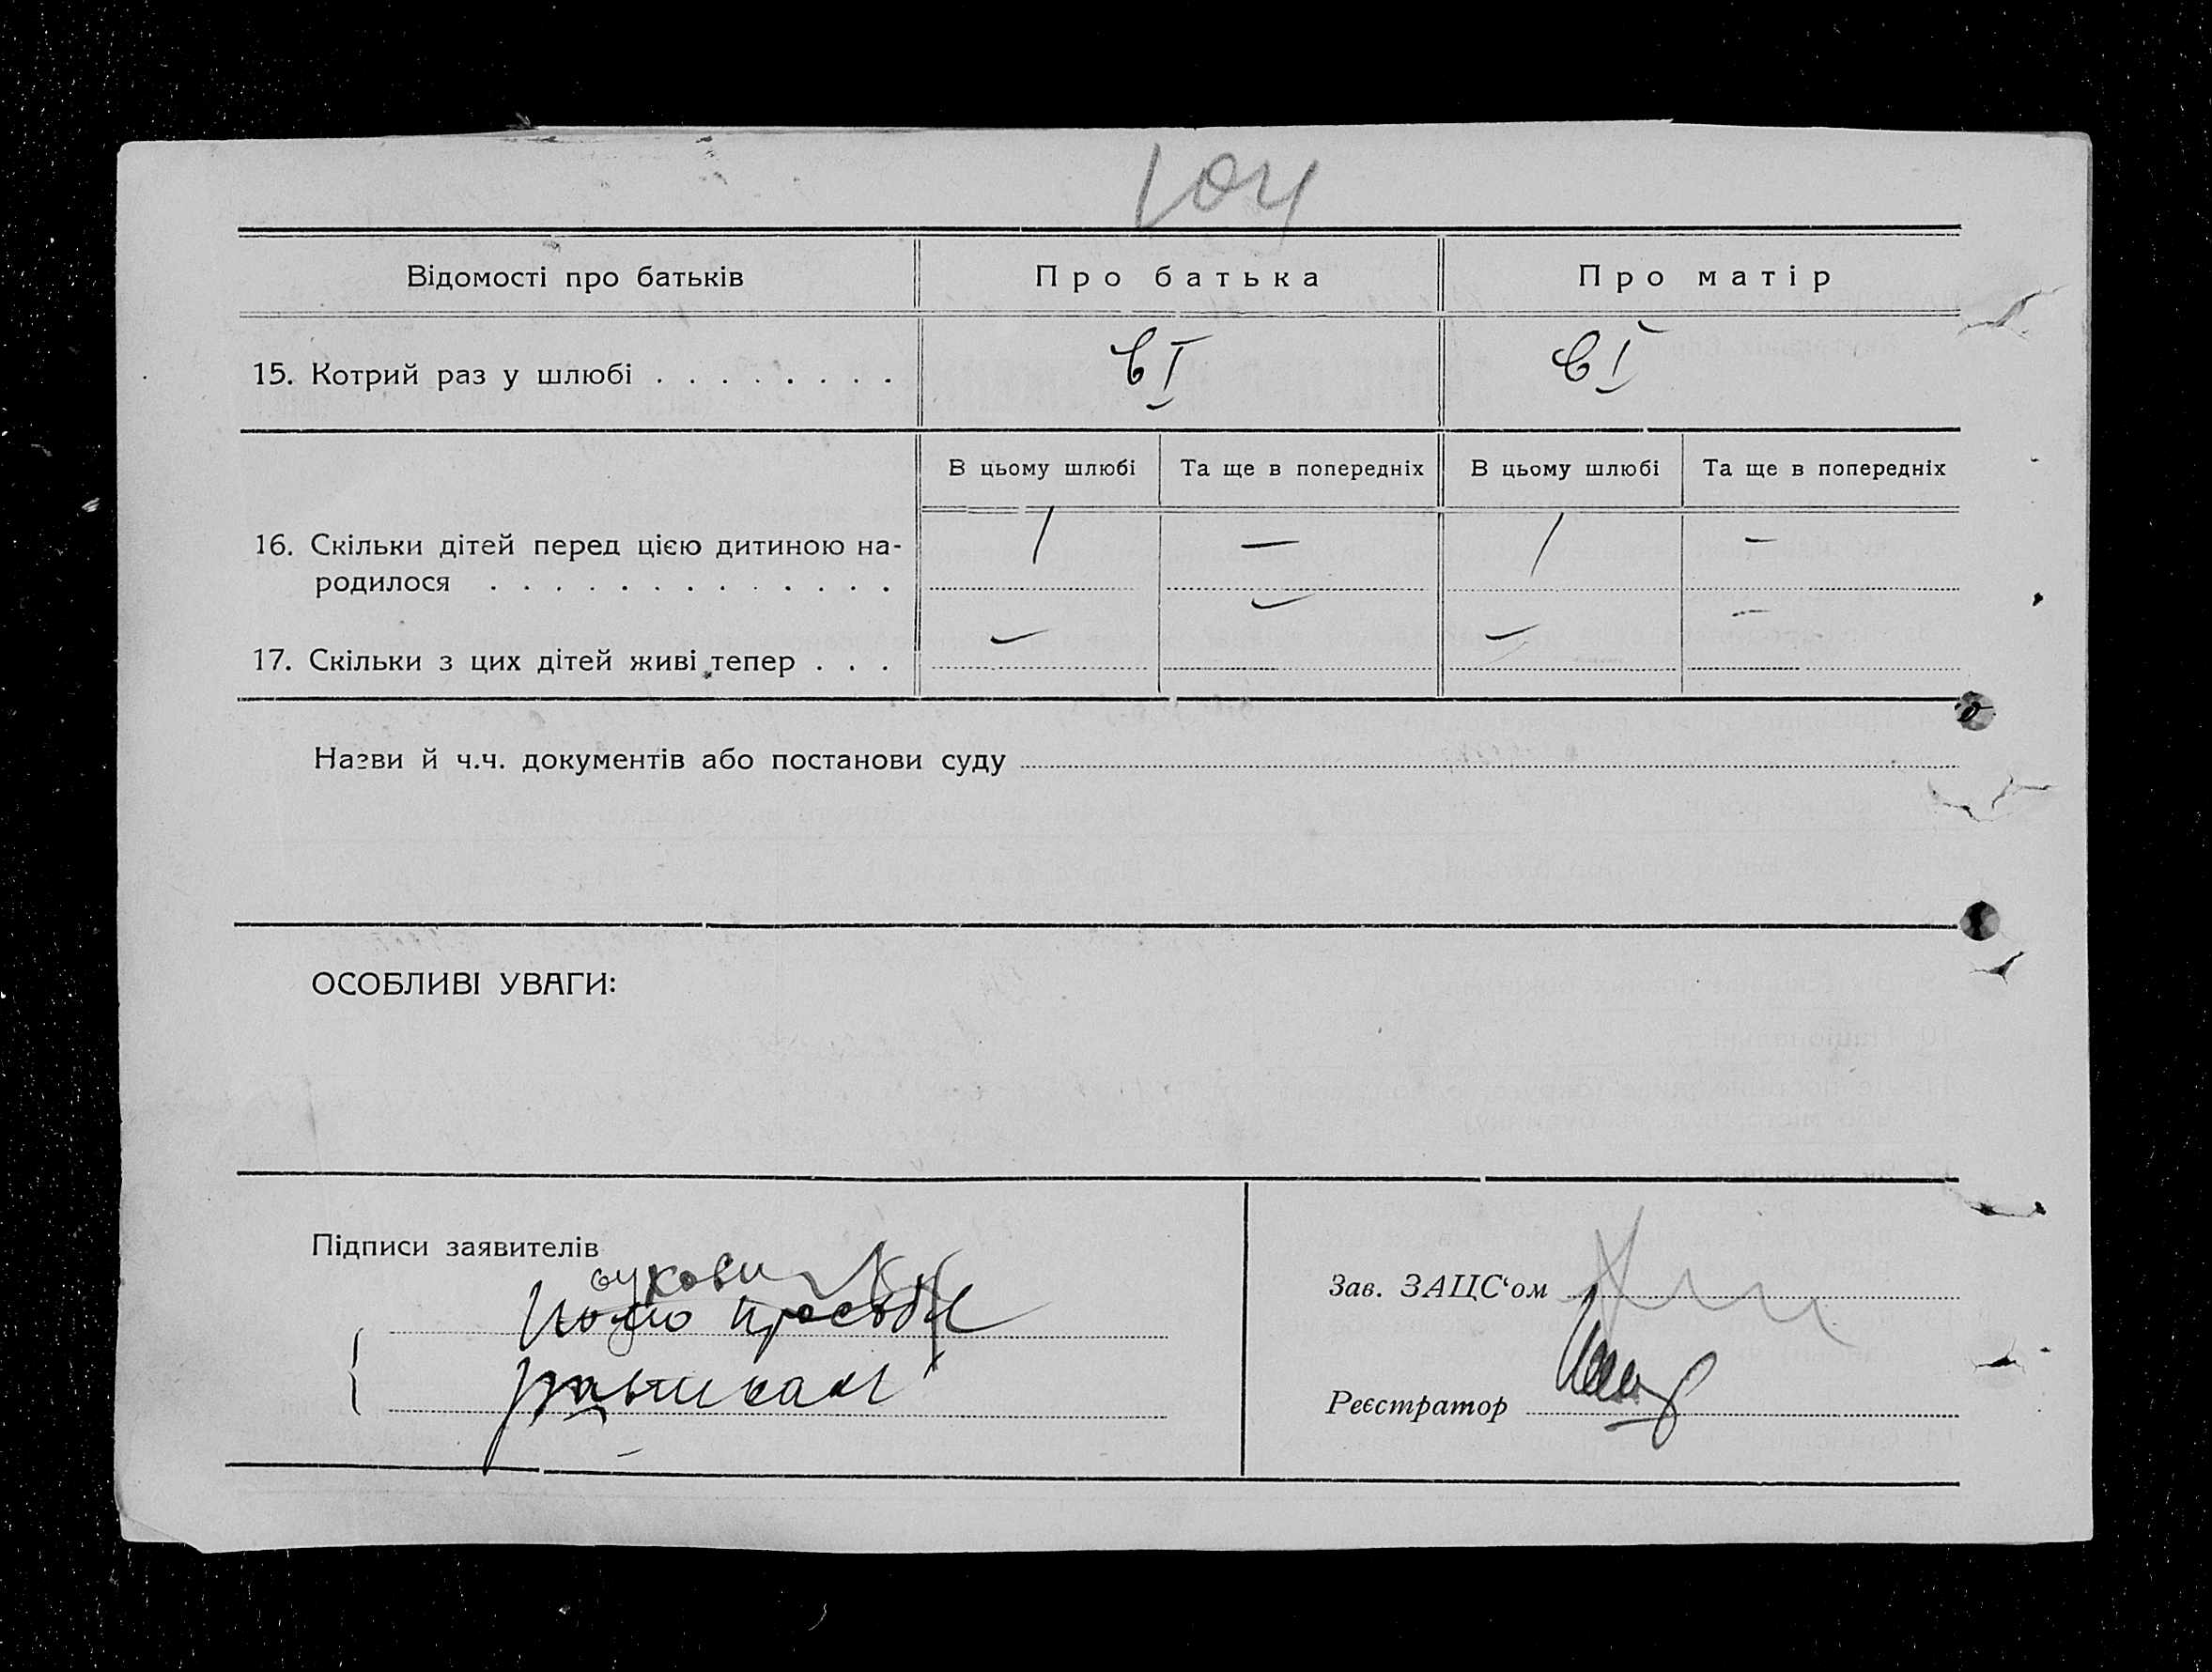 104
Відомості про батьків Про батька Про матір
15. Котрий раз у шлюбі . . . . . . . . в I в I
В цьому шлюбі Та ще в попередніх В цьому шлюбі Та ще в попередніх
16. Скільки дітей перед цією дитиною на- 1 — 1 —
родилося . . . . . . . . . . . . .
17. Скільки з цих дітей живі тепер . . . — — — —
Назви й ч.ч. документів або постанови суду
ОСОБЛИВІ УВАГИ:
Підписи заявителів
просьбі
Зав. ЗАЦС‘ом
Реєстратор